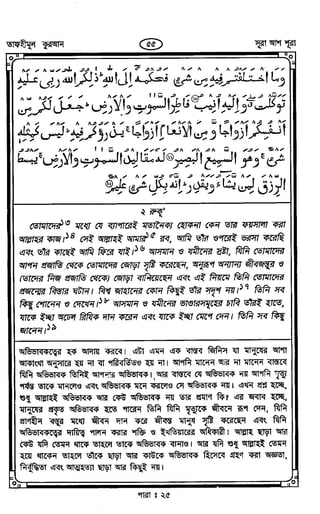 তাফহীমুল কুরআন
৫৫
সূরা আশ শূরা
وَمَا اخْتَلَفْتُمْ فِيهِ مِنْ شَيْءٍ فَحُكْمُهُ إِلَى اللَّهِ ذَلِكُمُ اللَّهُ رَبِّي عَلَيْهِ
تَوَكَّلْتُ وَإِلَيْهِ أُنِيبُ فَاطِرُ السَّمَوَتِ وَالْأَرْضِ جَعَلَ لَكُمْ مِنْ
أَنْفُسِكُمْ أَزْوَاجًا وَمِنَ الْأَنْعَامِ أَزْوَاجًا يَذْرَؤُكُمْ فِيهِ لَيْسَ كَمِثْلِهِ
شَيْءٌ وَهُوَ السَّمِيعُ الْبَصِيرُ لَهُ مَقَالِيدُ السَّمَوَتِ وَالْأَرْضِ يَبْسُطُ
الرِّزْقَ لِمَنْ يَشَاءُ وَيَقْدِرُ إِنَّهُ بِكُلِّ شَيْءٍ عَلِيمٌ
২ রুকূ'
তোমাদের১৩ মধ্যে যে ব্যাপারেই মতানৈক্য হোকনা কেন তার ফায়সালা করা
আল্লাহর কাজ।১৪ সেই আল্লাহই আমার১৫ রব, আমি তাঁর ওপরেই ভরসা করেছি
এবং তাঁর কাছেই আমি ফিরে যাই।১৬ আসমান ও যমীনের স্রষ্টা, যিনি তোমাদের
আপন প্রজাতি থেকে তোমাদের জোড়া সৃষ্টি করেছেন, অনুরূপ অন্যান্য জীবজন্তুর ও
তাদের নিজ প্রজাতি থেকে জোড়া বানিয়েছেন এবং এই নিয়মে তিনি তোমাদের
প্রজন্মের বিস্তার ঘটান। বিশ্ব জাহানের কোন কিছুই তাঁর সদৃশ নয়।১৭ তিনি সব
কিছু শোনেন ও দেখেন।১৮ আসমান ও যমীনের ভাণ্ডারসমূহের চাবি তাঁরই হাতে,
যাকে ইচ্ছা অঢেল রিযিক দান করেন এবং যাকে ইচ্ছা মেপে দেন। তিনি সব কিছু
জানেন।১৯
অভিভাবকত্বের হক আদায় করবে। এটা এমন এক বাস্তব জিনিস যা মানুষের আশা
আকাংখা অনুসারে হয় না বা পরিবর্তিতও হয় না। আপনি মানেন আর না মানেন বাস্তবে
যিনি অভিভাবক তিনিই আপনার অভিভাবক। আর বাস্তবে যে অভিভাবক নয় আপনি মৃত্যু
পর্যন্ত তাকে মানলেও এবং অভিভাবক মনে করলেও সে অভিভাবক নয়। এখন প্রশ্ন হচ্ছে,
শুধু আল্লাহই অভিভাবক আর কেউ অভিভাবক নয় তার প্রমাণ কি? এর জবাব হচ্ছে,
মানুষের প্রকৃত অভিভাবক হতে পারেন তিনি যিনি মৃত্যুকে জীবনে রূপ দেন, যিনি
প্রাণহীন বস্তুর মধ্যে জীবন দান করে জীবন্ত মানুষ সৃষ্টি করেছেন এবং যিনি
অভিভাবকত্বের দায়িত্ব পালন করার শক্তি ও ইখতিয়ারের অধিকারী। আল্লাহ ছাড়া আর
কেউ যদি তেমন থাকে তাহলে তাকে অভিভাবক বানাও। আর যদি শুধু আল্লাহই তেমন
হয়ে থাকেন তাহলে তাঁকে ছাড়া আর কাউকে অভিভাবক হিসেবে গ্রহণ করা অজ্ঞতা,
নির্বুদ্ধিতা এবং আত্মহত্যা ছাড়া আর কিছুই নয়।
পারা : ২৫